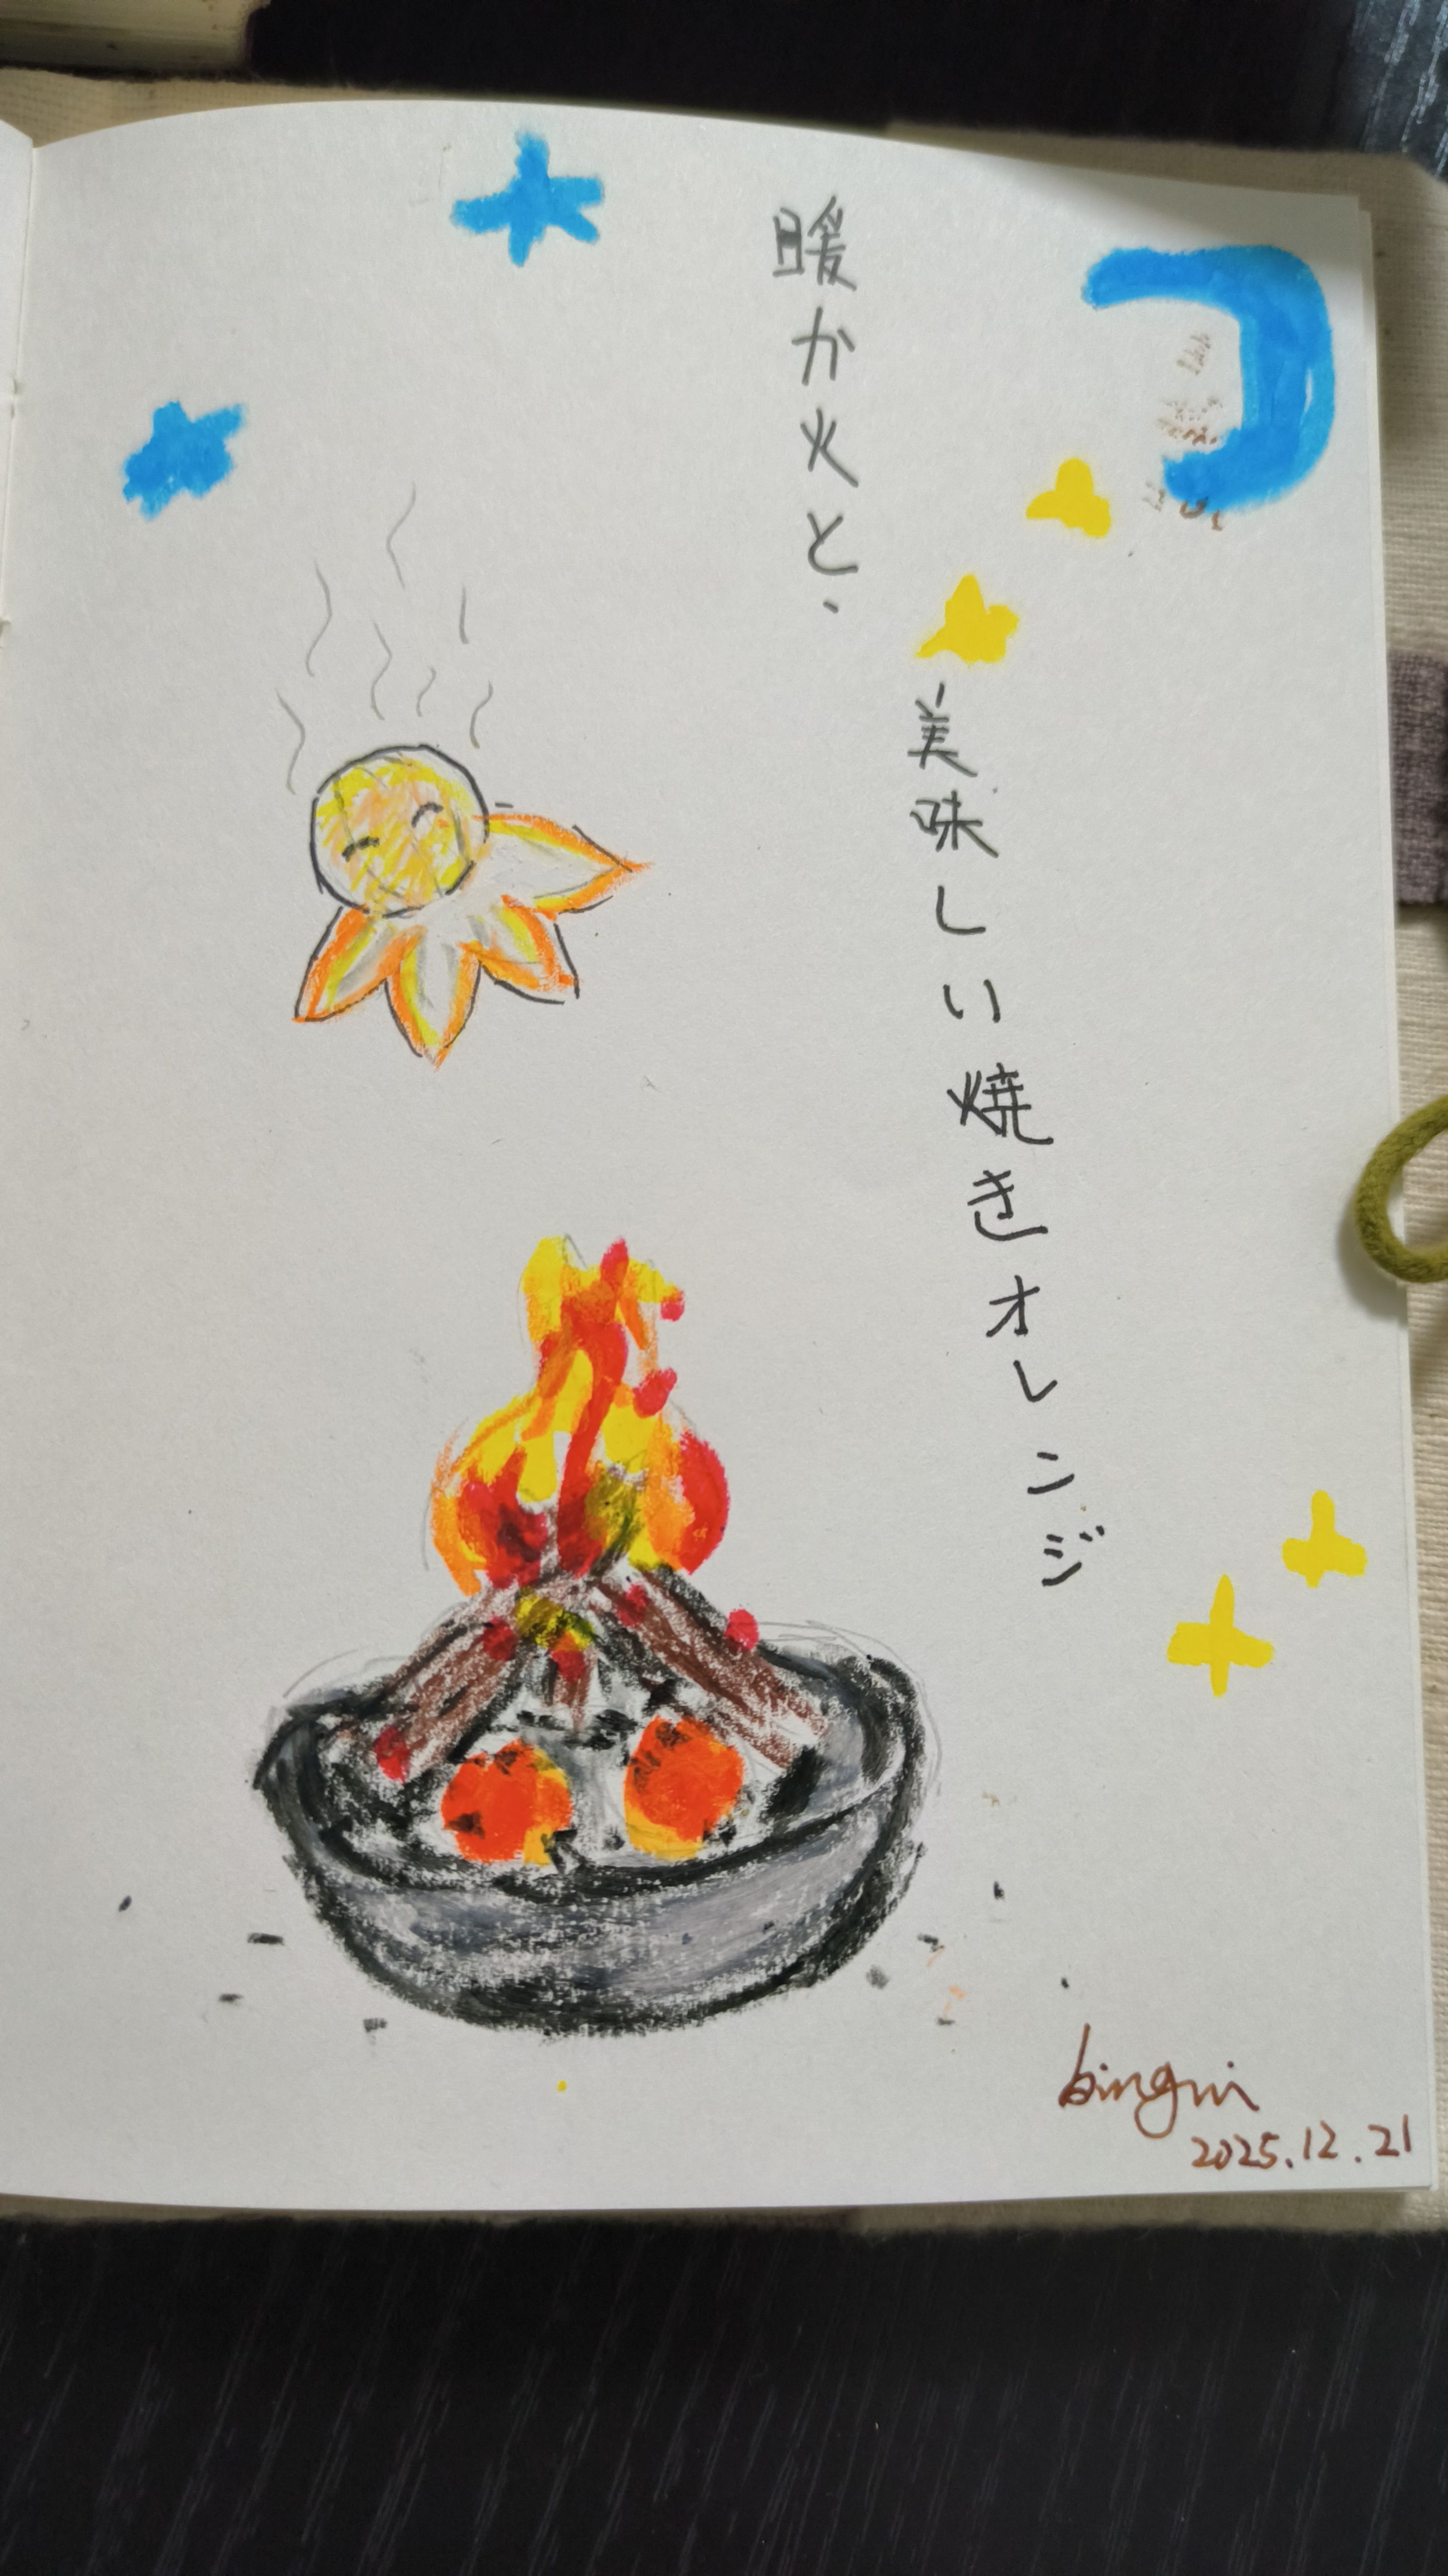 暖か火と、
美味しい焼きオレンジ
2025.12.21